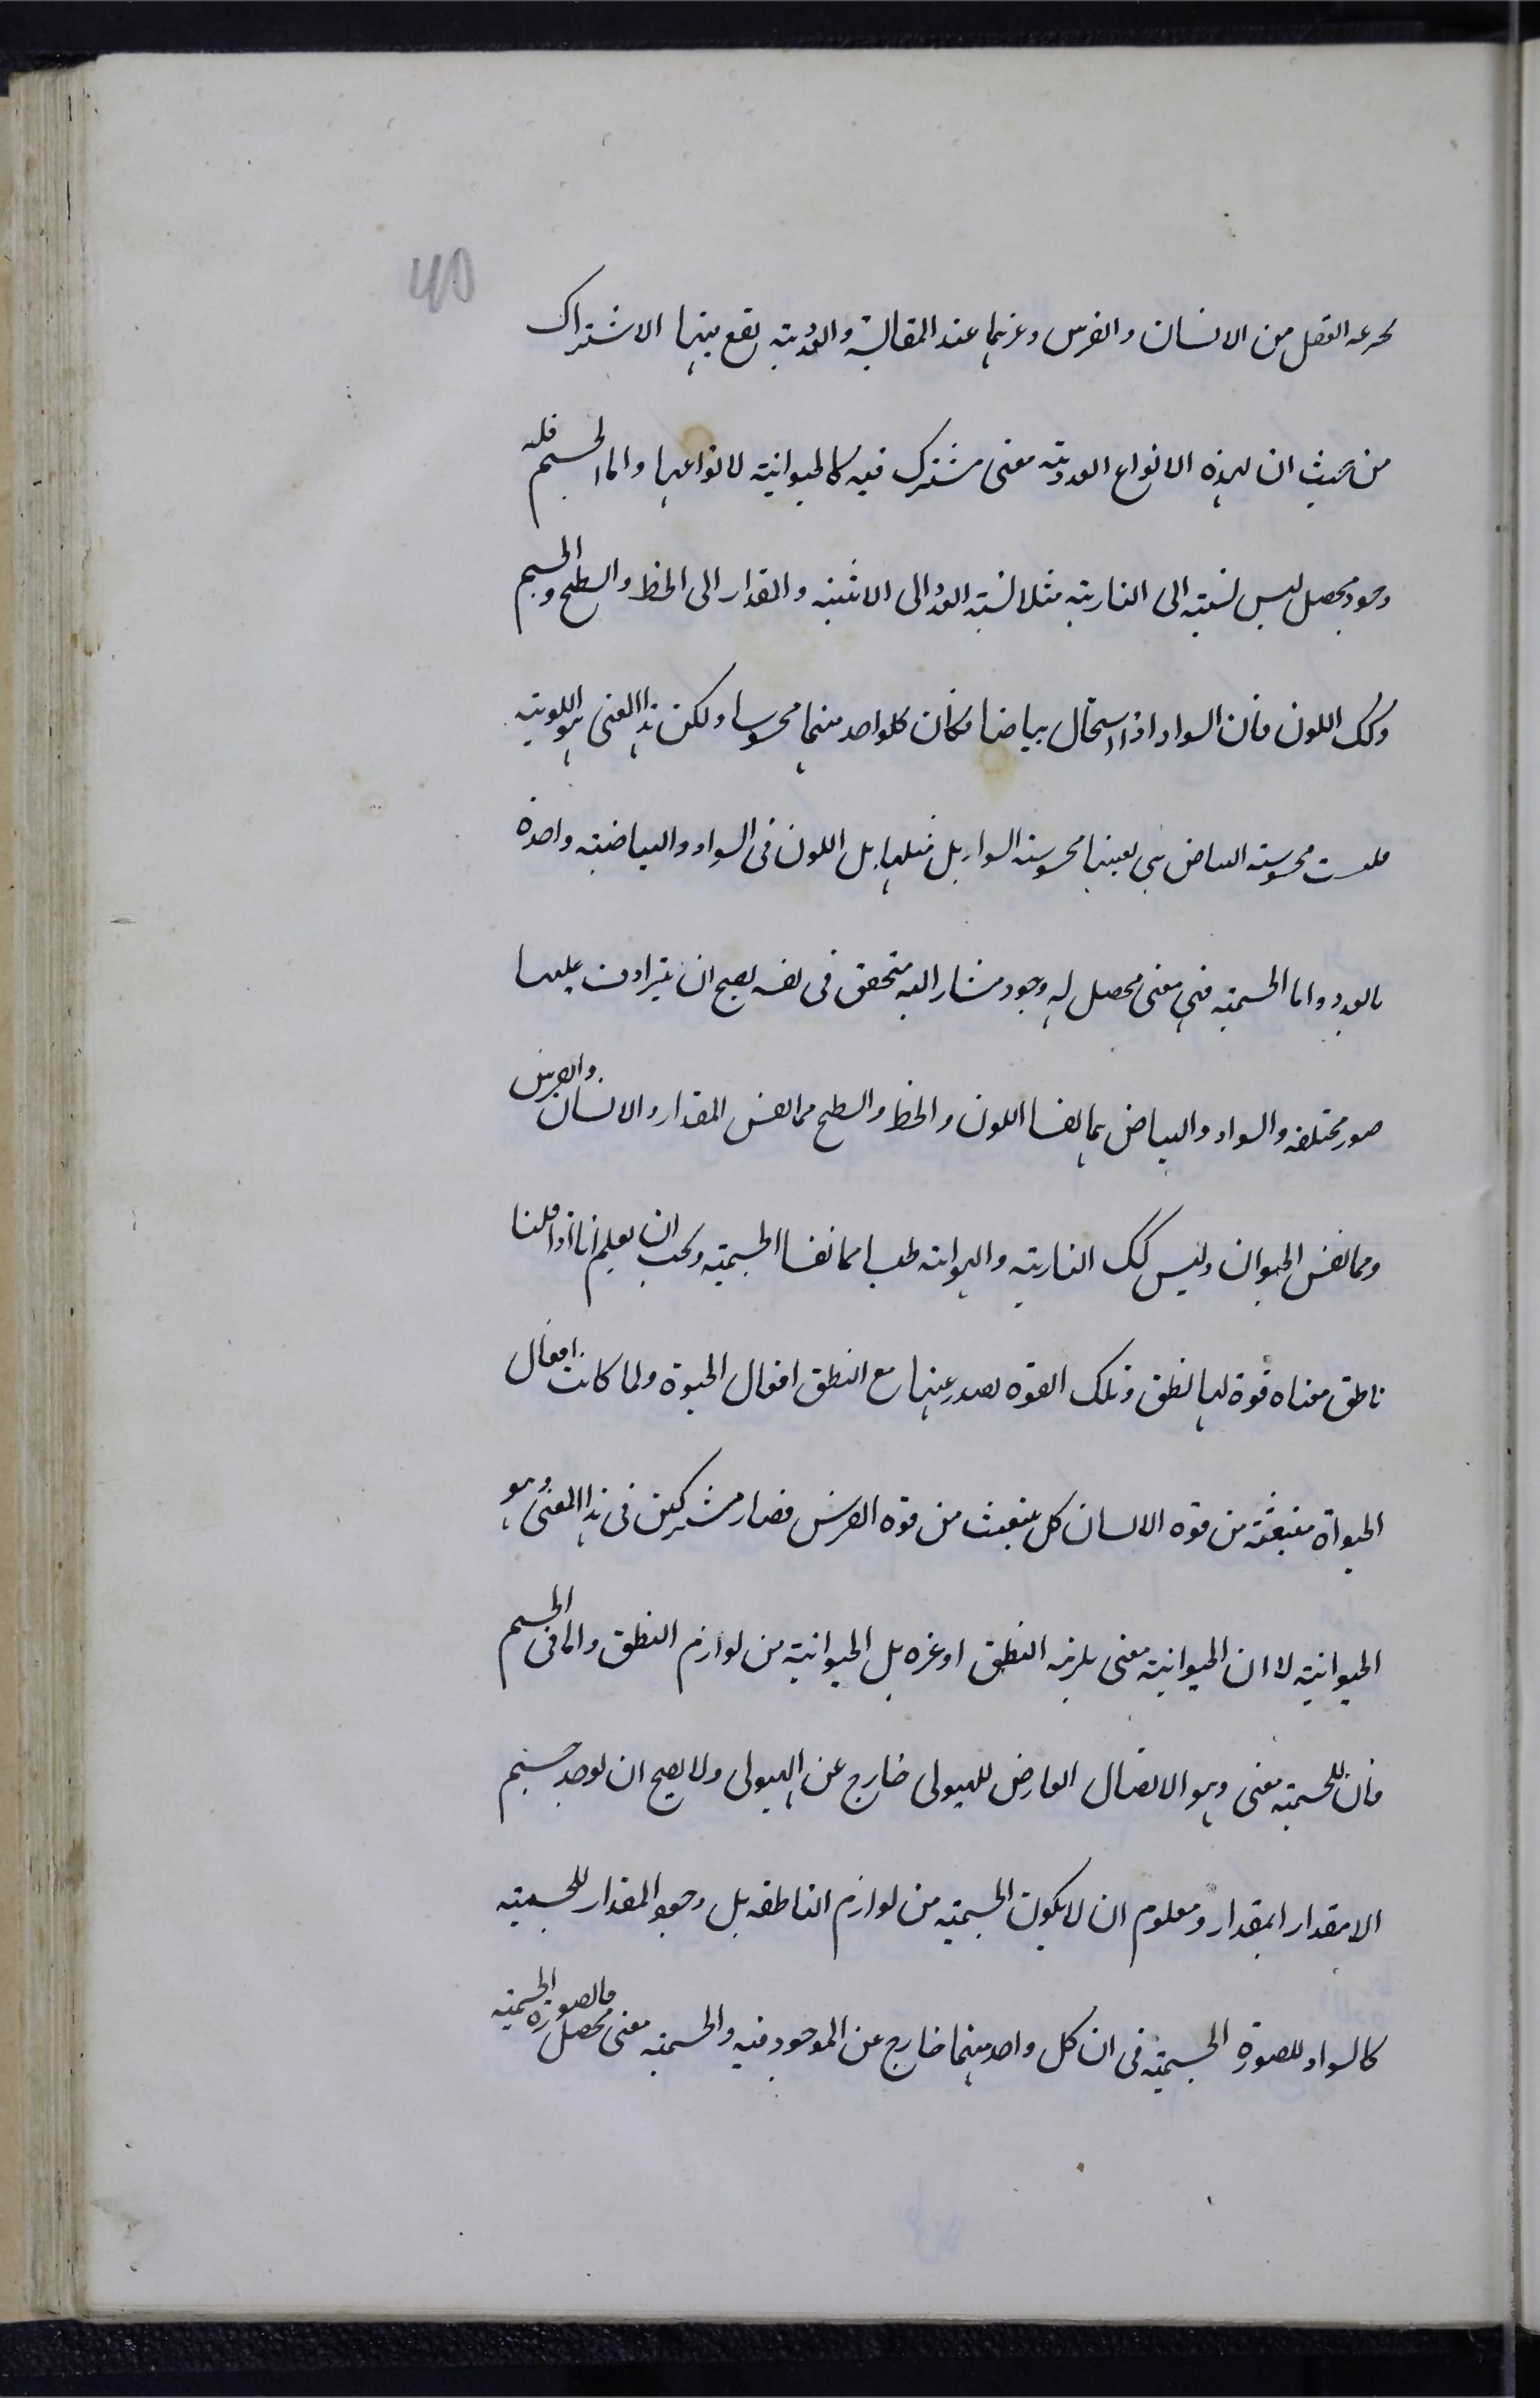 40
العقل من الانسان والفرس وغيرهما عند المقايسة والعددية يقع بينهما الاشتراك
من حيث ان لهذه الانواع العددية معنى مشترك فيه كالحيوانية لانواعها واما الجسم فله
وجود محصل ليس نسبته الى النارية مثلا نسبة العدد الى الاثنينية والمقدار الى الخط والسطح والجسم
وكك اللون فان السواد اذا استحال بياضا فكان كلواحد منهما محسوسا ولكن هذا المعنى هو اللونية
فليست محسوسية البياض هى بعينها محسوسية السواد بل مثلها بل اللون فى السواد والبياضية واحدة
بالعدد واما الجسمية فهى معنى محصل له وجود مشار اليه متحقق فى نفسه يصح ان يترادف عليها
صور مختلفة والسواد والبياض هما نفسا اللون والخط والسطح مما نفس المقدار والانسان والفرس
ومما نفس الحيوان وليس كك النارية والهوائية مما نفسا الجسمية ويجب ان يعلم انا اذا قلنا
ناطق معناه قوة لها نطق وتلك القوة يصدر عنها مع النطق افعال الحيوة ولما كانت افعال
الحيواة منبعثة من قوة الانسان كل ينبعث من قوة الفرس فصار مشتركين فى هذا المعنى وهو
الحيوانية لا ان الحيوانية معنى يلزمه النطق او غيره بل الحيوانية من لوازم النطق واما فى الجسم
فان للجسمية معنى وهو الاتصال العارض للهيولى خارج عن الهيولى ولا يصح ان يوجد جسم
الا مقدار ابمقدار ومعلوم ان لا يكون الجسمية من لوازم الناطقه بل وجود المقدار للجسمية
كالسواد للصورة الجسمية فى ان كل واحد منهما خارج عن الموجود فيه والجسمية معنى محصل فالصورة الجسمية